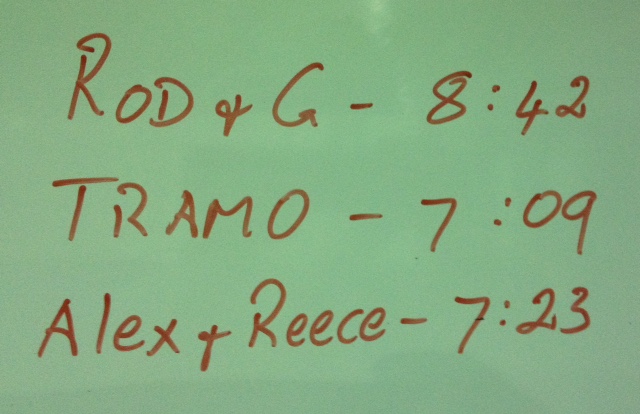 ROD & G - 8:42
TRAMO - 7:09
Alex & Reece - 7:23